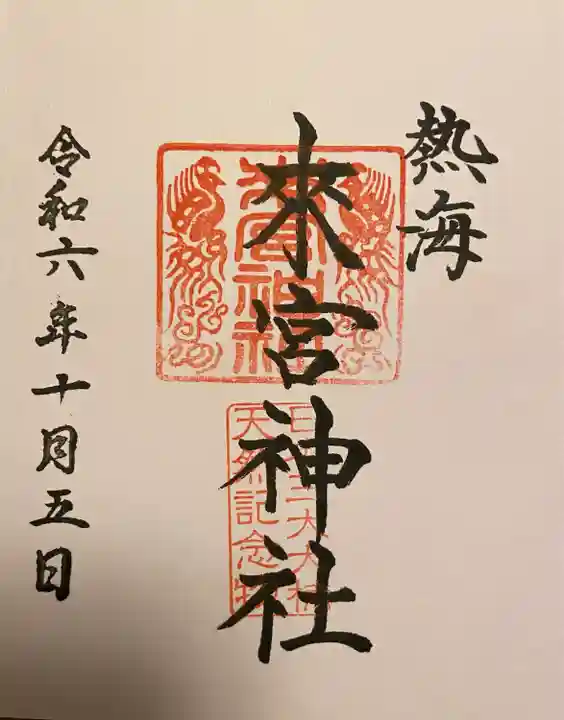 熱海
來宮神社
來宮神社
日本三大大楠
天然記念物
令和六年十月五日